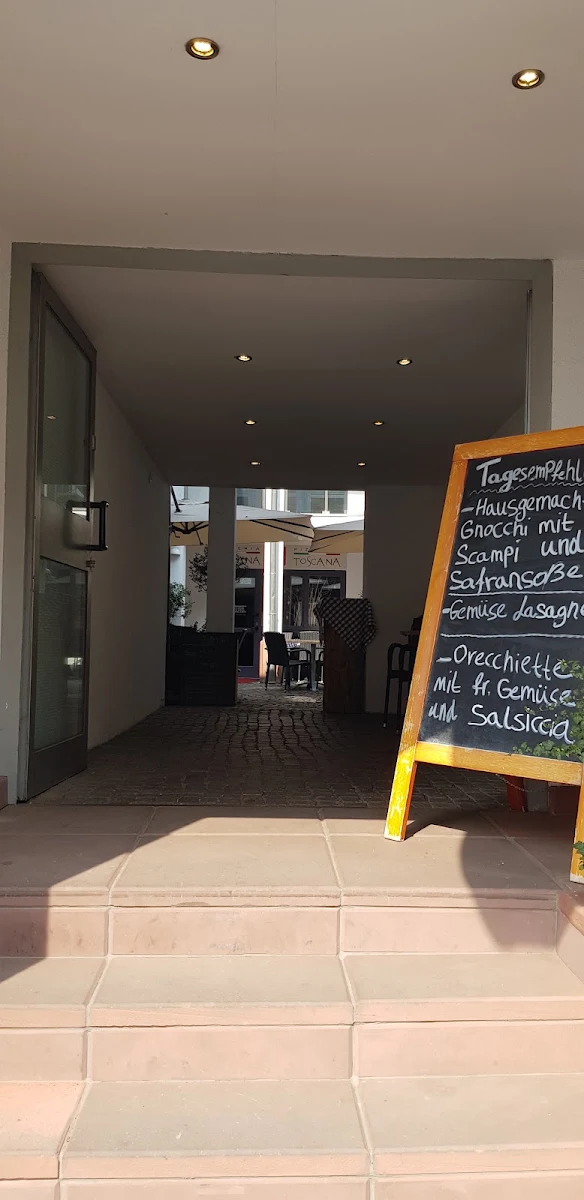 TOSCANA
Tagesempfehl
-Hausgemach
Gnocchi mit
Scampi und
Safransoße
-Gemüse Lasagne
-Orecchiette
mit fr. Gemüse
und Salsiccia